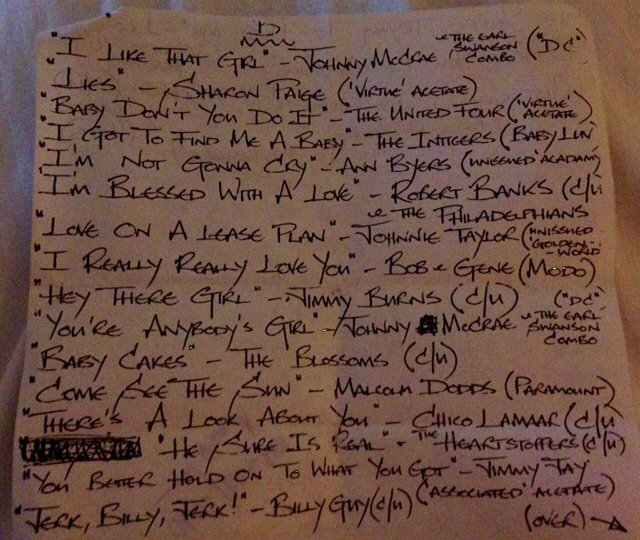 D
"I LIKE THAT GIRL" - JOHNNY MCCRAE & THE EARL SWANSON COMBO ("DC")
LIES" - SHARON PAIGE ('VIRTUE' ACETATE)
"BABY DON'T YOU DO IT" - THE UNITED FOUR ('VIRTUE' ACETATE)
"I GOT TO FIND ME A BABY" - THE INTIGERS (BABY LUV)
"I'M NOT GONNA CRY" - ANN BYERS (UNISSUED 'ACADAMY
"I'M BLESSED WITH A LOVE" - ROBERT BANKS (C/U)
& THE PHILADELPHIANS
"LOVE ON A LEASE PLAN" - JOHNNIE TAYLOR (UNISSUED 'GOLDEN - WORLD
"I REALLY REALLY LOVE YOU" - BOB & GENE (MODO)
"HEY THERE GIRL" - JIMMY BURNS (C/U)
"YOU'RE ANYBODY'S GIRL" - JOHNNY MCCRAE & THE EARL SWANSON COMBO ("DC")
"BABY CAKES" - THE BLOSSOMS (C/U)
"COME SEE THE SUN" - MALCOLM DODDS (PARAMOUNT)
"THERE'S A LOOK ABOUT YOU" - CHICO LAMAAR (C/U)
"HE SURE IS REAL" - THE HEARTSTOPPERS (C/U)
"YOU BETTER HOLD ON TO WHAT YOU GOT" - JIMMY JAY
('ASSOCIATED' ACETATE)
"JERK, BILLY, JERK!" - BILLY GUY (C/U)
(OVER) →